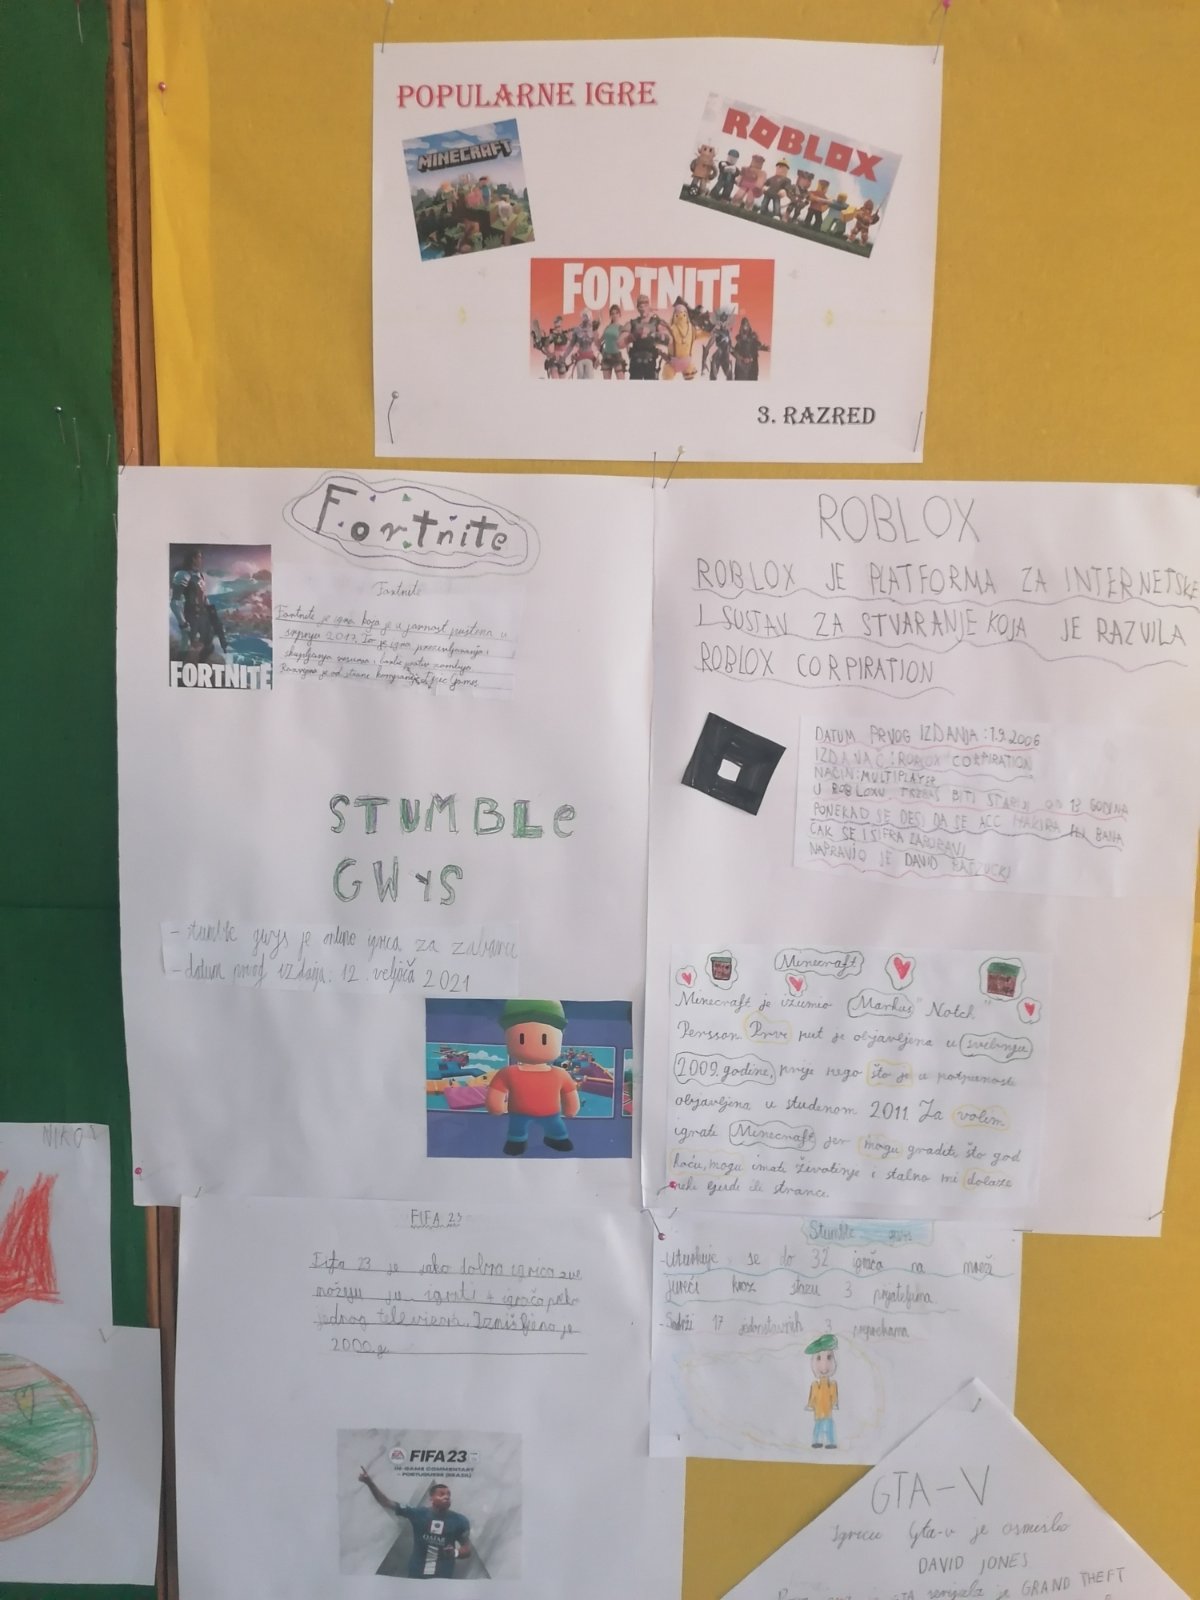 POPULARNE IGRE
MINECRAFT
ROBLOX
FORTNITE
3. RAZRED
Fortnite
FORTNITE
Fortnite
Fortnite je igra koja je u javnost puštena u
srpnju 2017. To je igra preživljavanja i
skupljanja resursa i borbe protiv zombija.
Razvijena je od strane kompanije Epic Games.
STUMBLE
GWYS
- stumble gwys je onlino igrica za zabavu
- datum prvog izdaja: 12. veljača 2021
ROBLOX
ROBLOX JE PLATFORMA ZA INTERNETSKE
I SUSTAV ZA STVARANJE KOJA JE RAZVILA
ROBLOX CORPIRATION
DATUM PRVOG IZDANJA: 1.9.2006
IZDAVAČ: ROBLOX CORPIRATION
NAČIN: MULTIPLAYER
U ROBLOXU TREBAŠ BITI STARIJI OD 13 GODINA
PONEKAD SE DESI DA SE ACC HAKIRA BANA
ČAK SE I ŠIFRA ZABORAVI
NAPRAVIO JE DAVID BASZUCKI
Minecraft
Minecraft je izumio Markus "Notch"
Persson. Prvi put je objavljena u svibnju
2009. godine, prije nego što je u potpunosti
objavljena u studenom 2011. Ja volim
igrati Minecraft jer mogu graditi što god
hoću, mogu imati životinje i stalno mi dolaze
neki ljudi ili stranci.
NIKO
FIFA 23
Fifa 23 je jako dobra igrica
možeju ju igrati 4 igrača preko
jednog televizera. Izmišljena je
2000.g.
FIFA 23
IN-GAME COMMENTARY
- PORTUGUESE (BRAZIL)
QATAR
Stumble
- Utrkuje se do 32 igrača na mreži
jureći kroz stazu 3 prijateljima.
- Sadrži 17 jednostavnih 3 preprekama
GTA-V
Igricu Gta-v je osmislio
DAVID JONES
GTA je GRAND THEFT